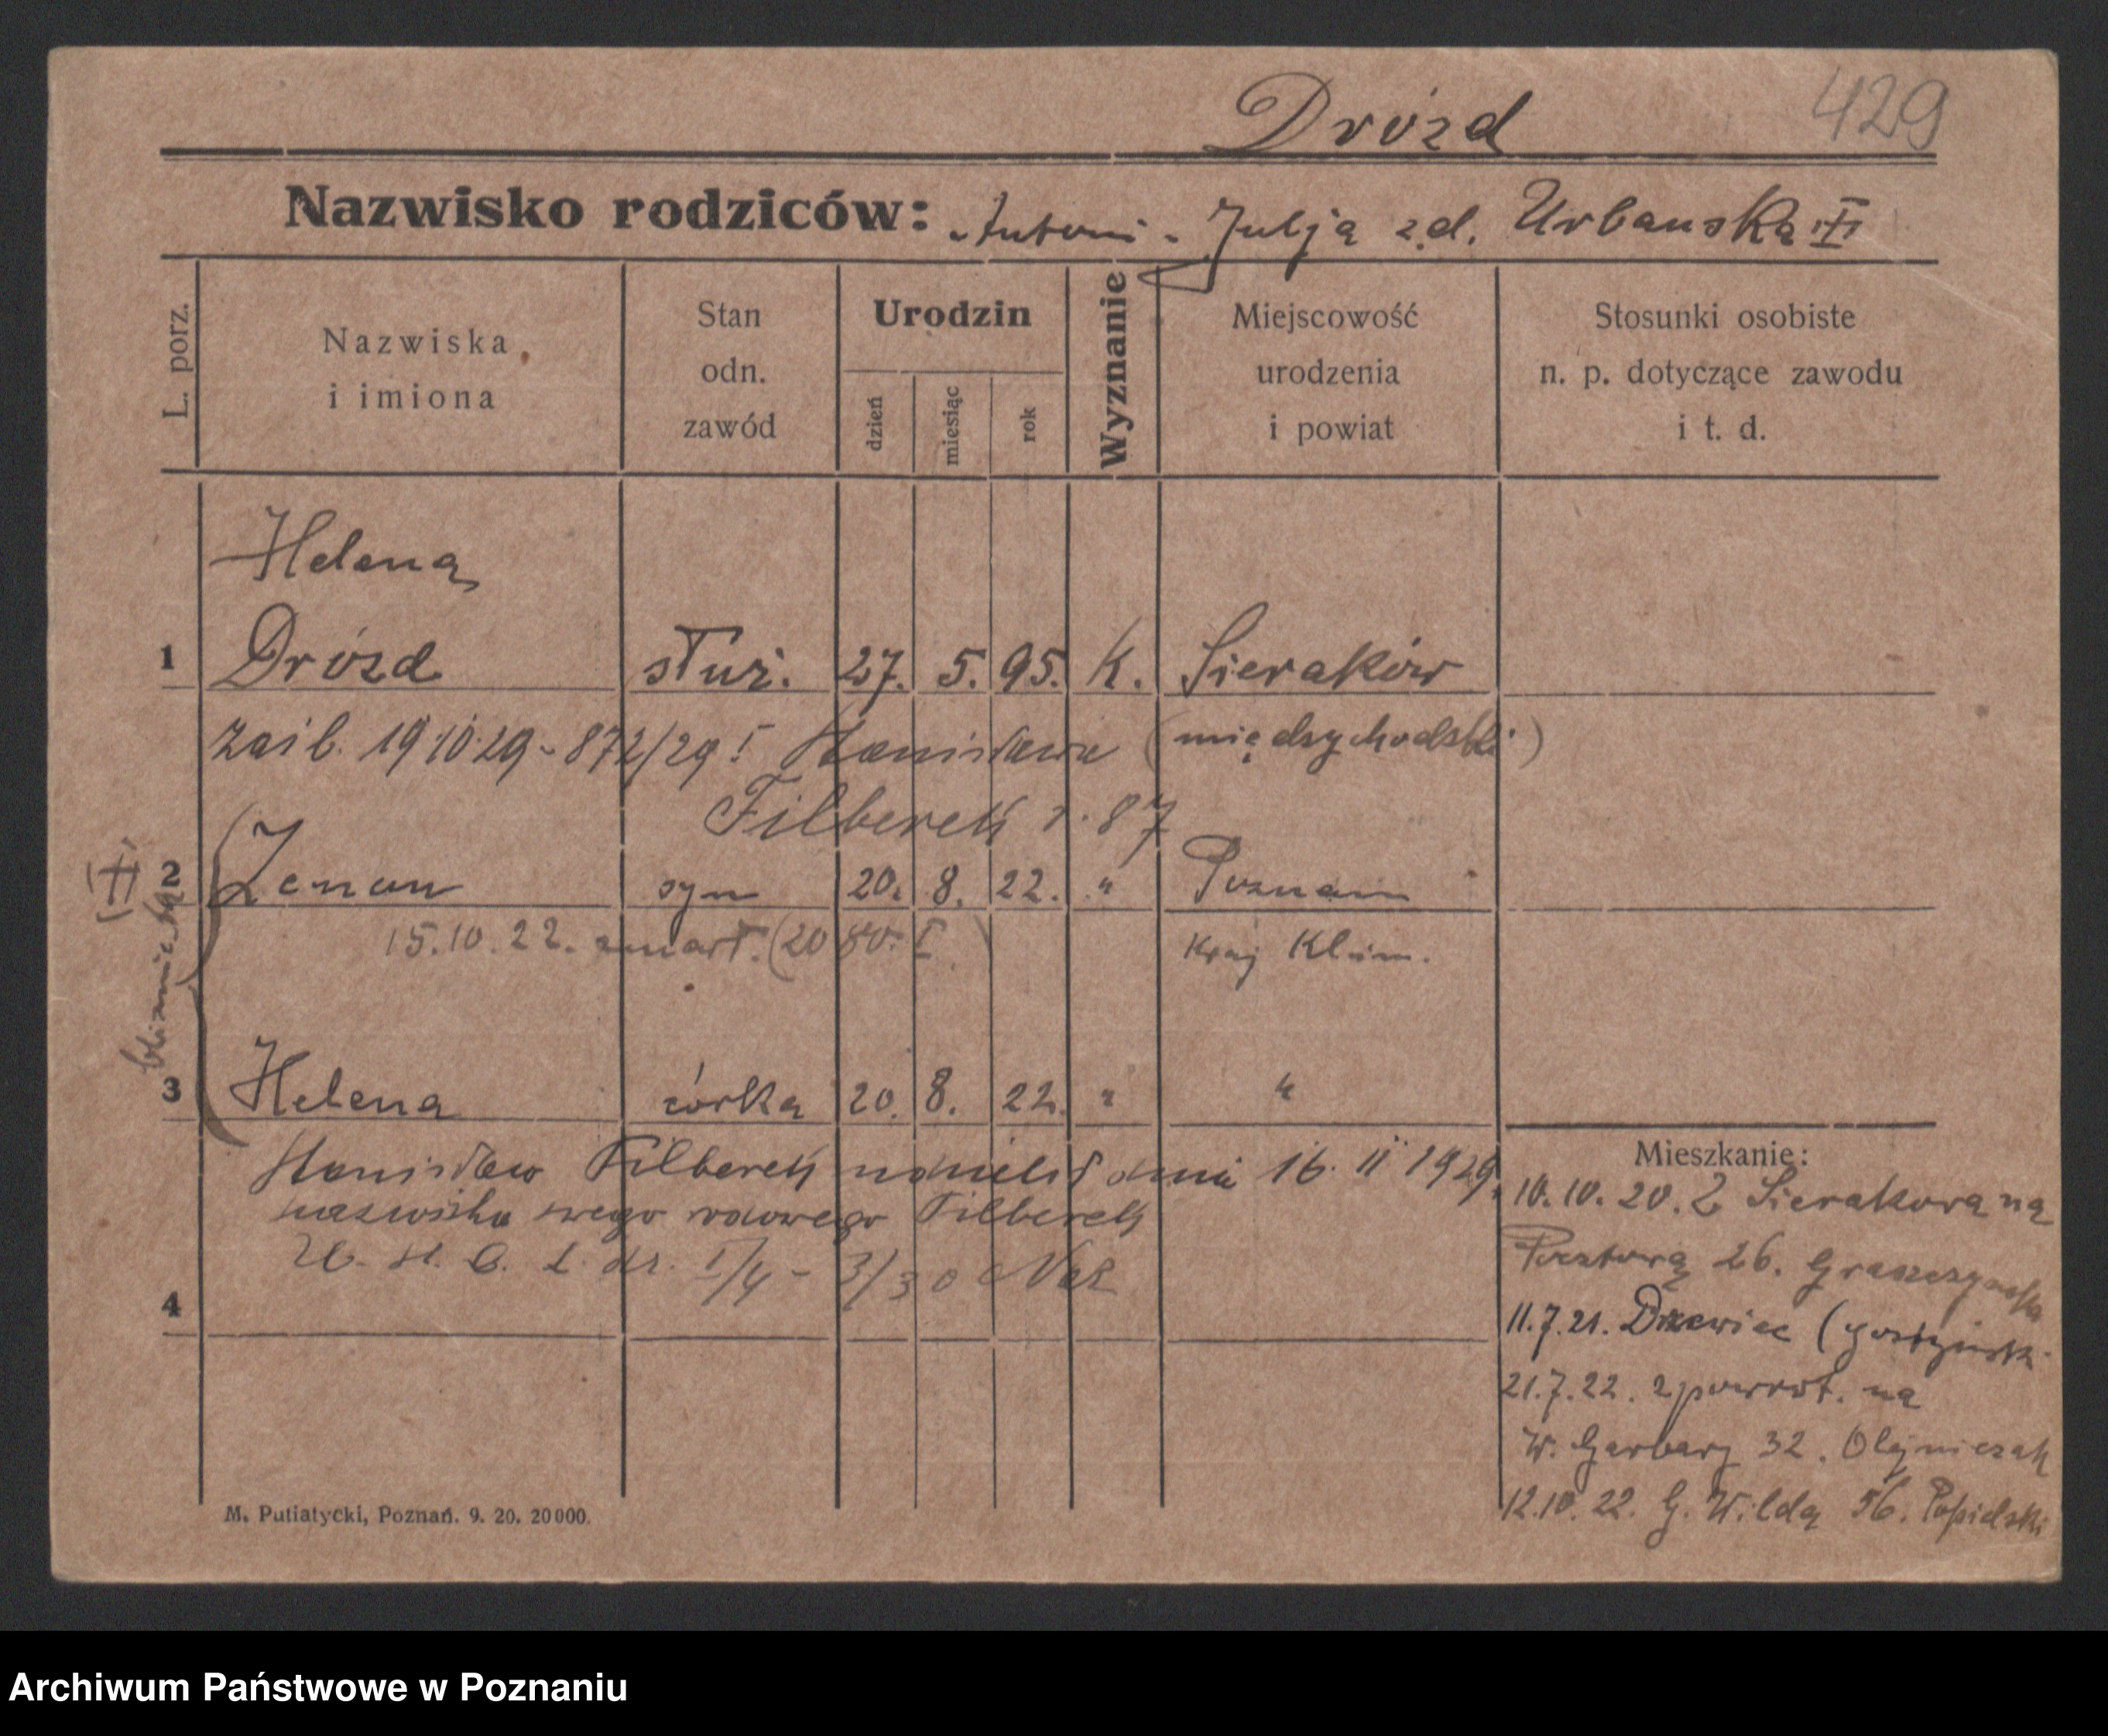 Drózd 429
Nazwisko rodziców: Antoni - Julja z d. Urbanska
L. porz.
Nazwiska
i imiona
Stan
odn.
zawód
Urodzin
dzień
miesiąc
rok
Wyznanie
Miejscowość
urodzenia
i powiat
Stosunki osobiste
n. p. dotyczące zawodu
i t. d.
Helena
1 Drózd służ. 27. 5. 95. K. Sieraków
19.10.29 - 872/29 I Stanisława (międzychodzki)
Filberek r. 87
2 Zenon syn 20. 8. 22. " Poznań
15.10.22. zmarł. (20 I) Kraj Klin.
bliznięta
3 Helena córka 20. 8. 22. " "
Stanisław Filberek udzielił dnia 16. II 1929.
nazwiska swego Filberek
I/4 - 3/30
4
Mieszkanie:
10.10.20. Z Sierakowa na
Pocztową 26.
11.7.21. Drzewiec (gostyński
21.7.22. z powrot. na
W. Garbary 32. Olejniczak
12.10.22. G. Wilda 56. Popielski
M. Putiatycki, Poznań. 9. 20. 20000.
Archiwum Państwowe w Poznaniu